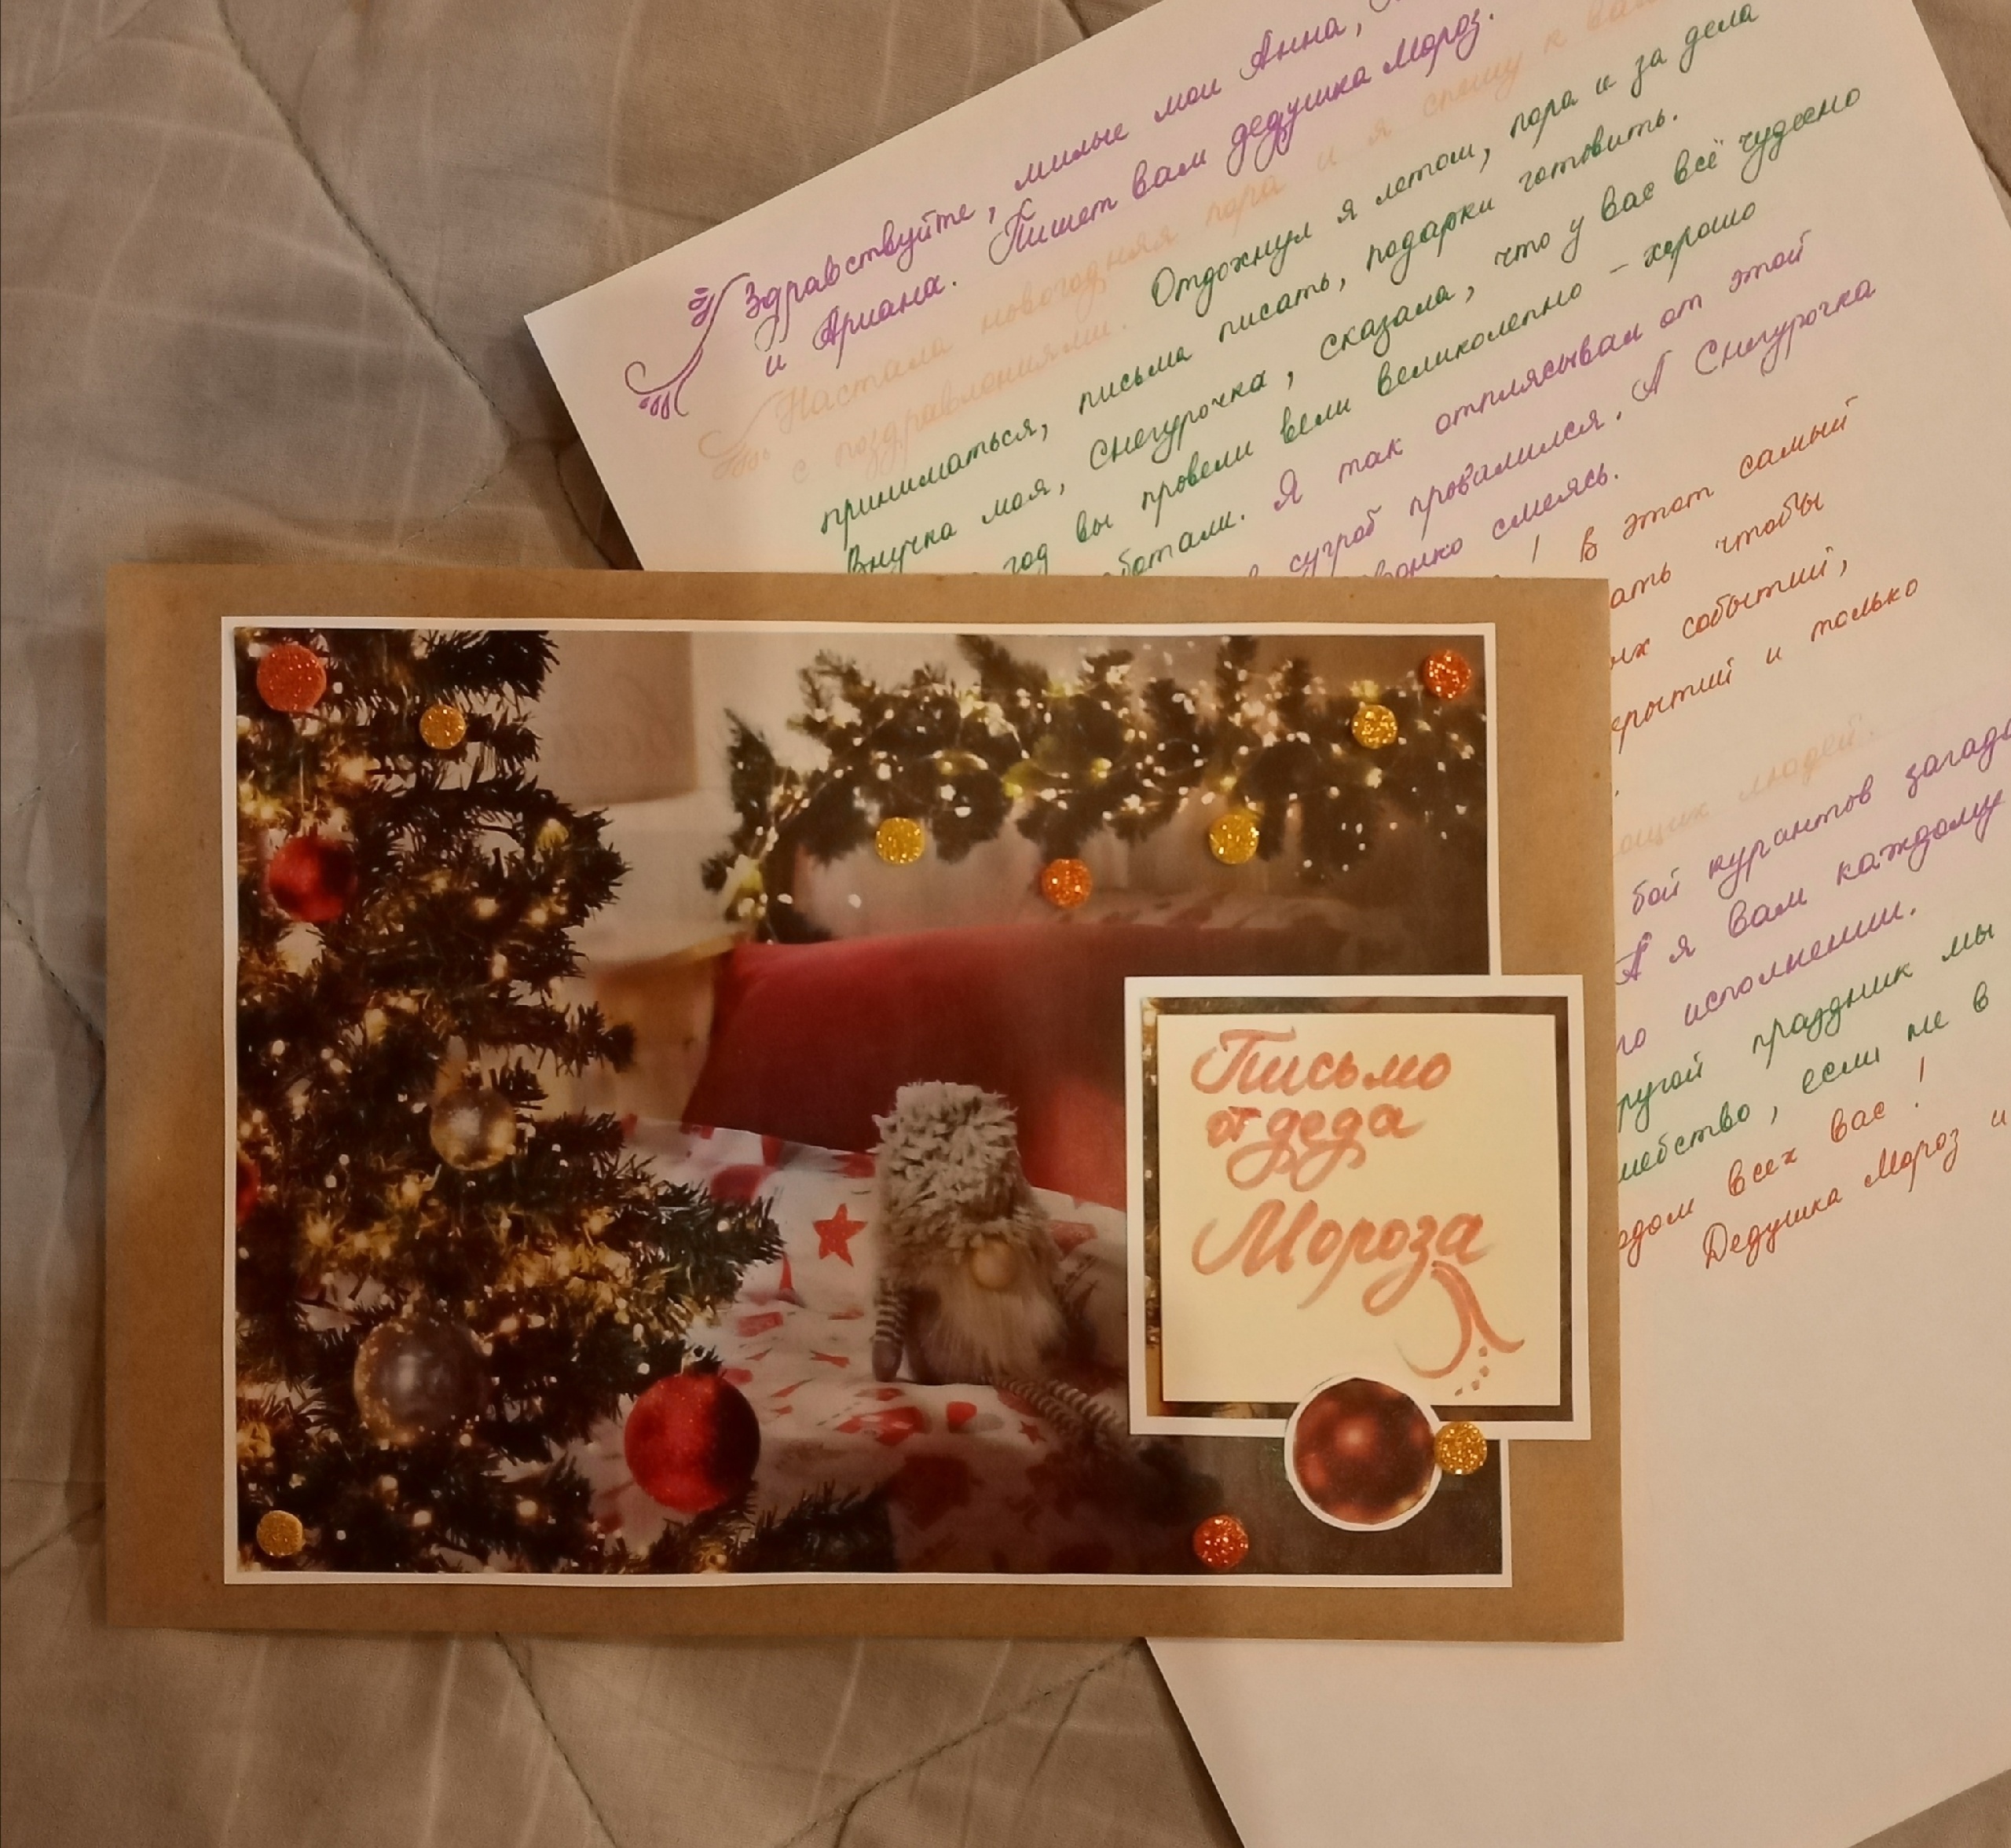 Здравствуйте, милые мои Анна,
и Ариана. Пишет вам дедушка Мороз.
Настала новогодняя пора и я спешу к вам
с поздравлениями. Отдохнул я летом, пора и за дела
приниматься, письма писать, подарки готовить.
Внучка моя, Снегурочка, сказала, что у вас всё чудесно
год вы провели вели великолепно - хорошо
ботали. Я так отплясывал от этой
в сугроб провалился. А Снегурочка
звонко смеясь.
! В этот самый
ать чтобы
ых событий,
крытий и только
.
ющих людей.
бой курантов загада
А я вам каждому
го исполнении.
ругой праздник мы
шебство, если не в
одом всех вас!
Дедушка Мороз и
Письмо
от деда
Мороза